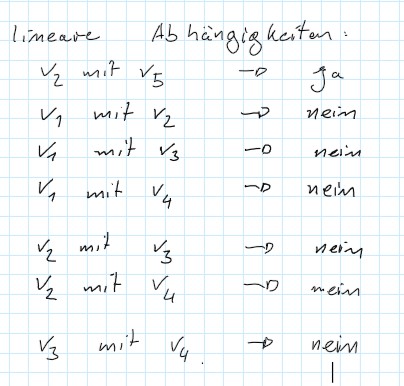 lineare Abhängigkeiten:
v₂ mit v₅ → ja
v₁ mit v₂ → nein
v₁ mit v₃ → nein
v₁ mit v₄ → nein
v₂ mit v₃ → nein
v₂ mit v₄ → nein
v₃ mit v₄. → nein